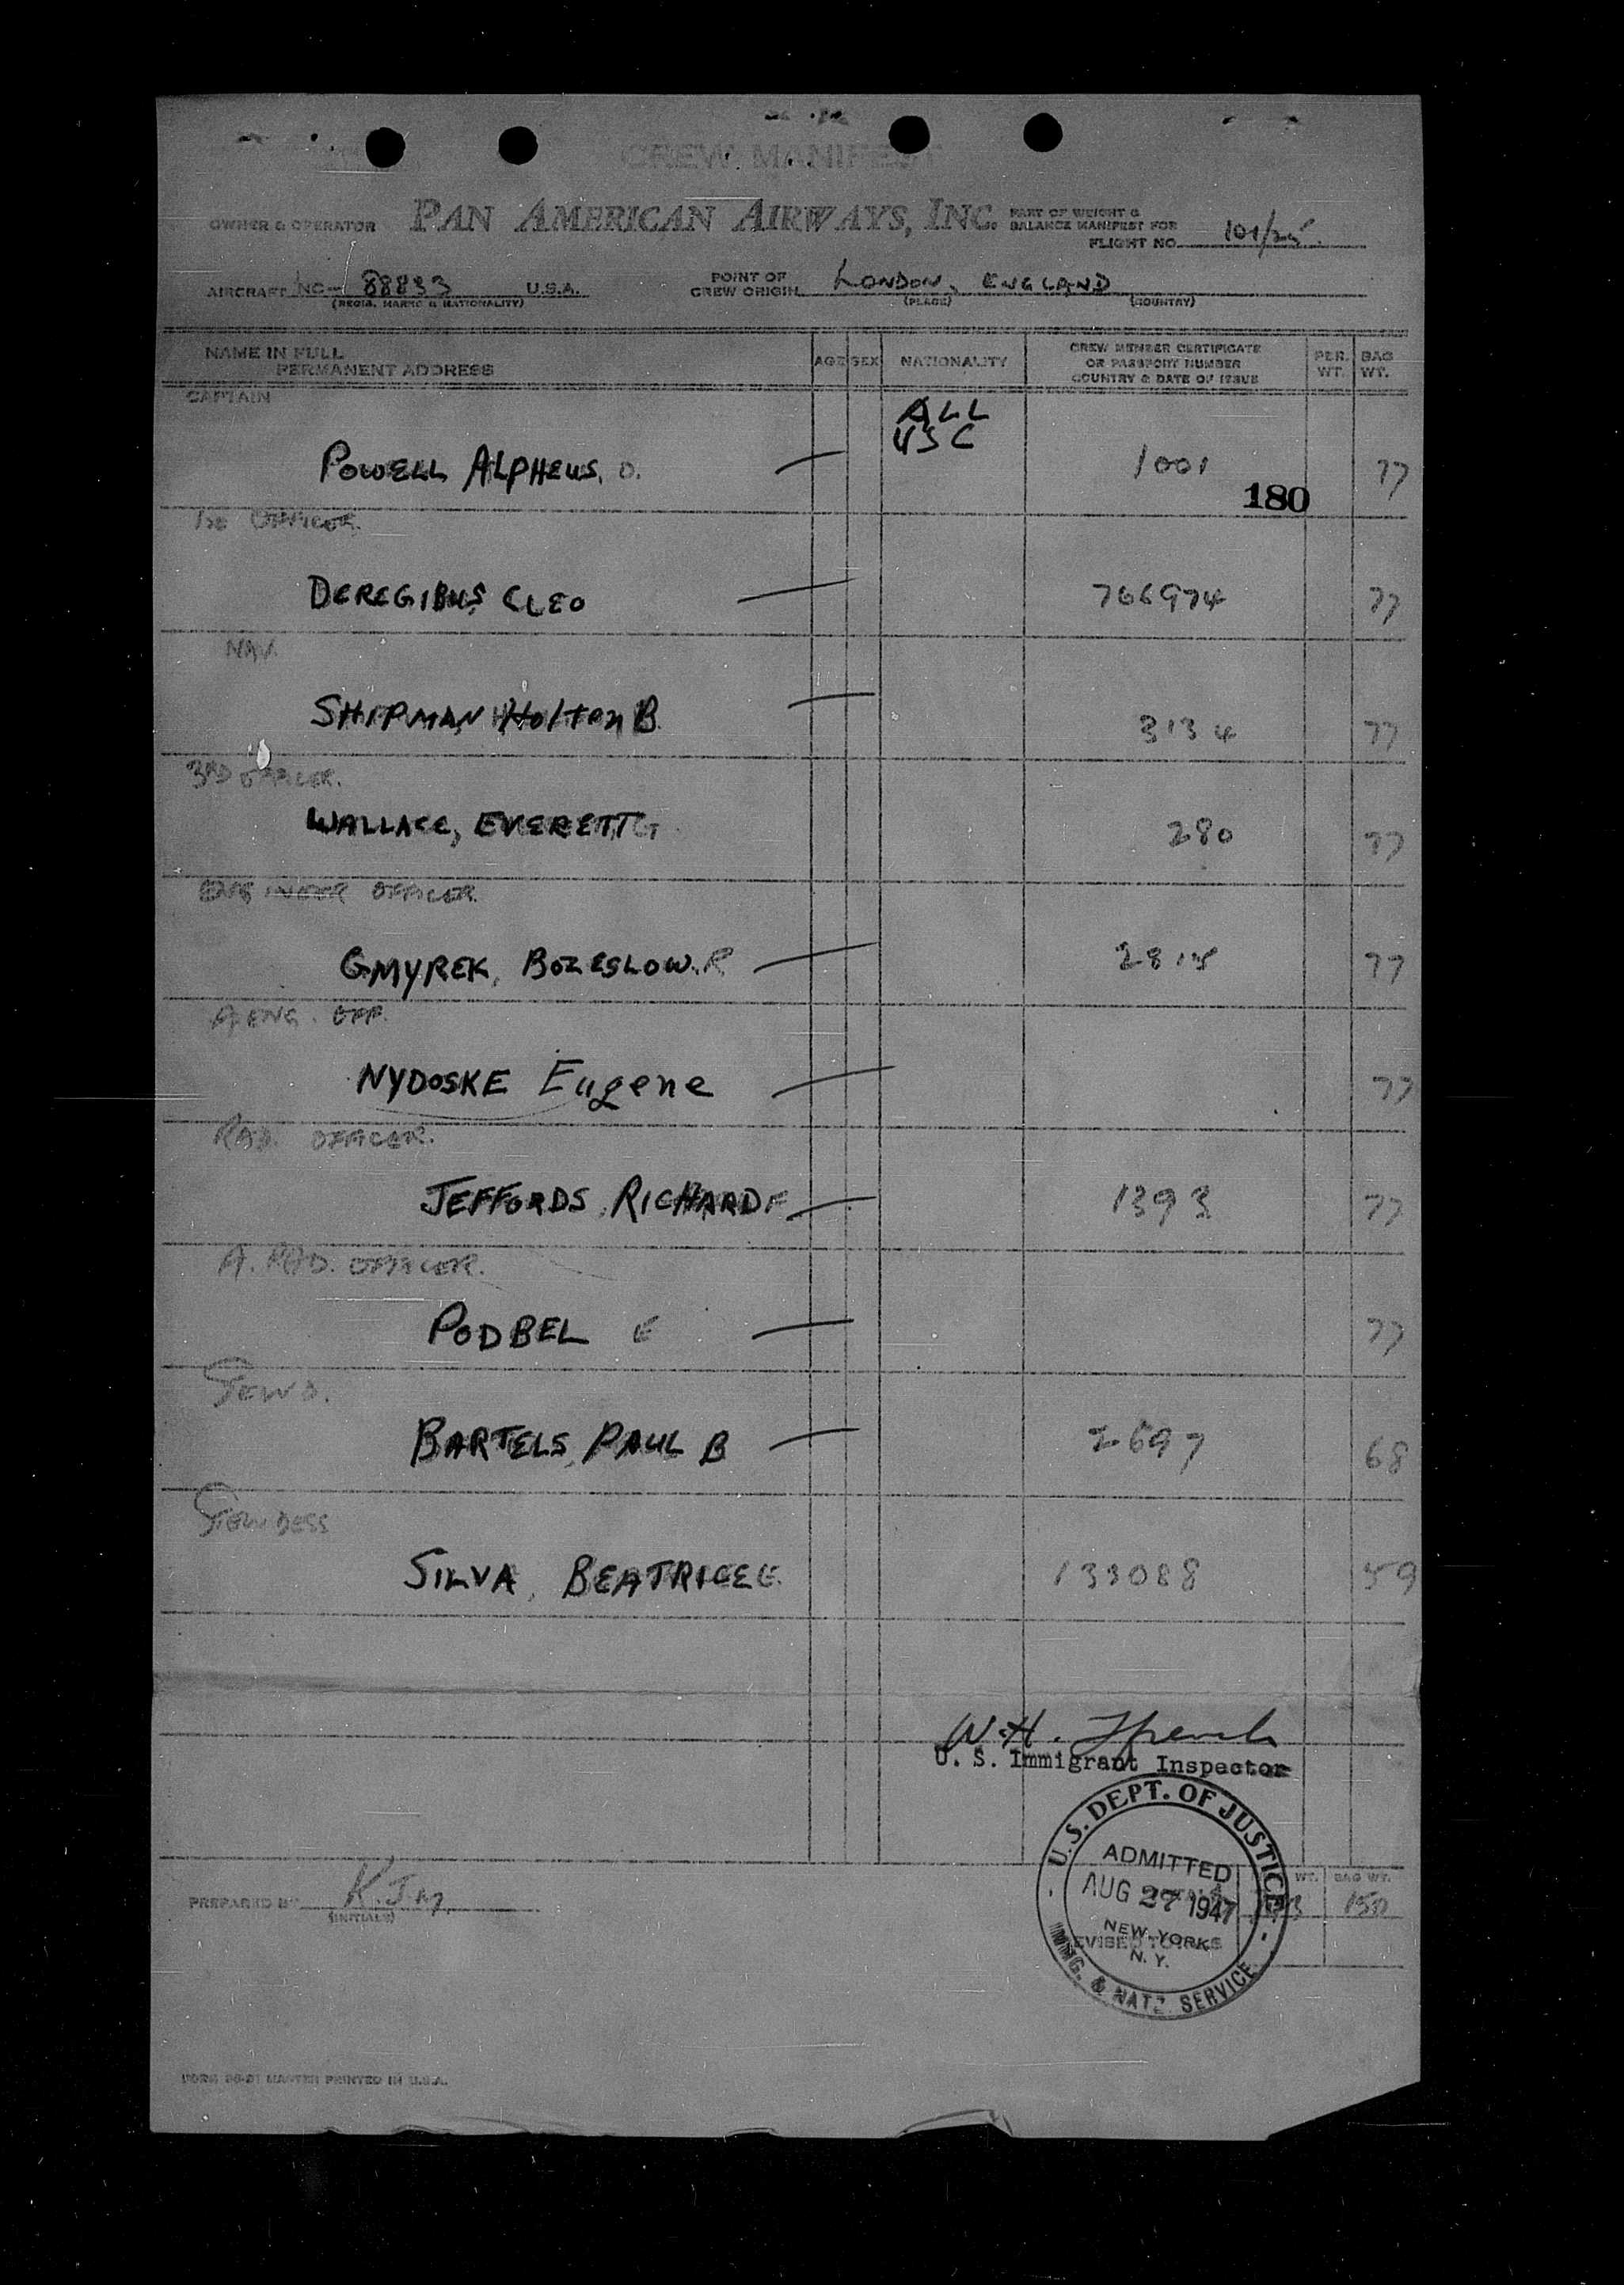 CREW MANIFEST
OWNER & OPERATOR PAN AMERICAN AIRWAYS, INC. PART OF WEIGHT & BALANCE MANIFEST FOR FLIGHT NO. 101/25.
AIRCRAFT NC-88833 U.S.A. POINT OF CREW ORIGIN LONDON, ENGLAND
(REGIS. MARKS & NATIONALITY) (PLACE) (COUNTRY)
NAME IN FULL PERMANENT ADDRESS AGE SEX NATIONALITY CREW MEMBER CERTIFICATE OR PASSPORT NUMBER COUNTRY & DATE OF ISSUE PER. WT. BAG WT.
CAPTAIN
ALL
USC
POWELL ALPHEUS. O. 1001 77
180
1ST OFFICER.
DEREGIBUS, CLEO 766974 77
NAV.
SHIPMAN, Holton B. 3134 77
3RD OFFICER.
WALLACE, EVERETT G 280 77
ENGINEER OFFICER.
GMYREK, BOLESLOW. R 2815 77
A ENG. OFF.
NYDOSKE Eugene 77
RAD. OFFICER.
JEFFORDS, RICHARD F 1393 77
A. RAD. OFFICER.
PODBEL E 77
STEWD.
BARTELS, PAUL B 2697 68
STEWDESS
SILVA, BEATRICE E. 133088 59
W. H.
U. S. Immigrant Inspector
U.S. DEPT. OF JUSTICE
ADMITTED
AUG 27 1947
NEW YORK
N. Y.
IMMG. & NATZ. SERVICE
WT. BAG WT.
PREPARED BY K.J.M.
(INITIALS)
PRINTED IN U.S.A.